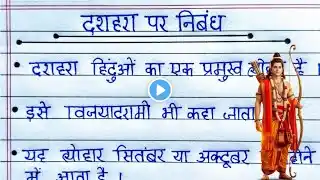 दशहरा पर निबंध
• दशहरा हिंदुओं का एक प्रमुख है ।
• इसे विजयादशमी भी कहा जाता
• यह त्योहार सितंबर या अक्टूबर
में आता है ।